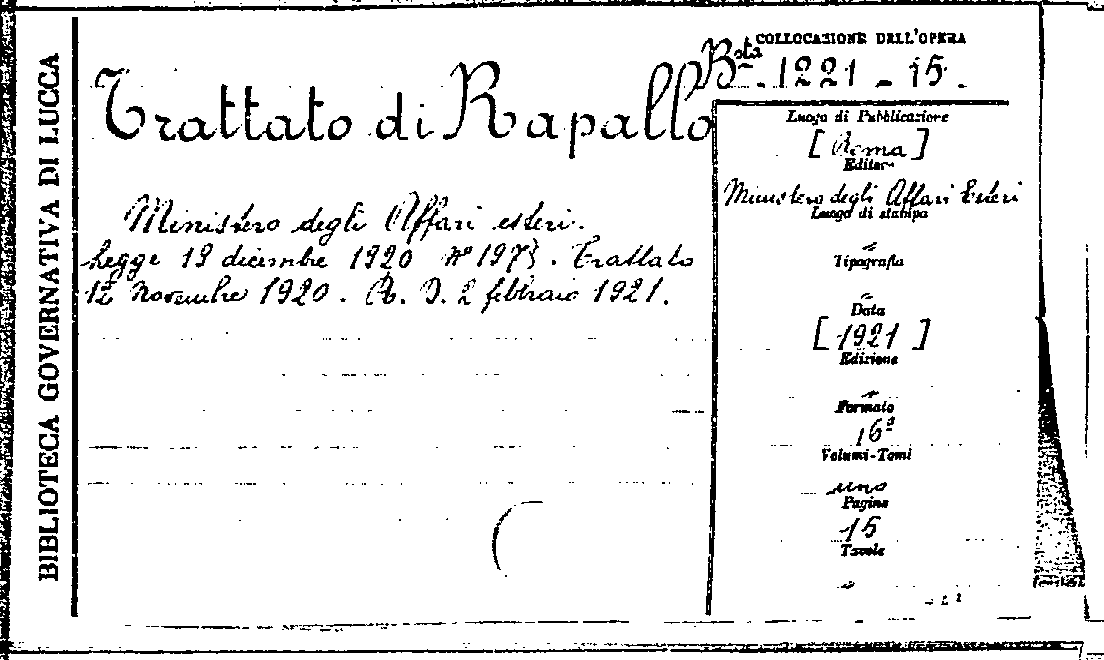 BIBLIOTECA GOVERNATIVA DI LUCCA
Trattato di Rapallo
Ministero degli Affari esteri.
Legge 19 dicembre 1920 n° 1973. Trattato
12 Novembre 1920. R. D. 2 febbraio 1921.
COLLOCAZIONE DELL'OPERA
Bsta. 1221 - 15.
Luogo di Pubblicazione
[Roma]
Editore
Ministero degli Affari Esteri
Luogo di stampa
Tipografia
Data
[1921]
Edizione
Formato
16º
Volumi-Tomi
uno
Pagine
15
Tavole